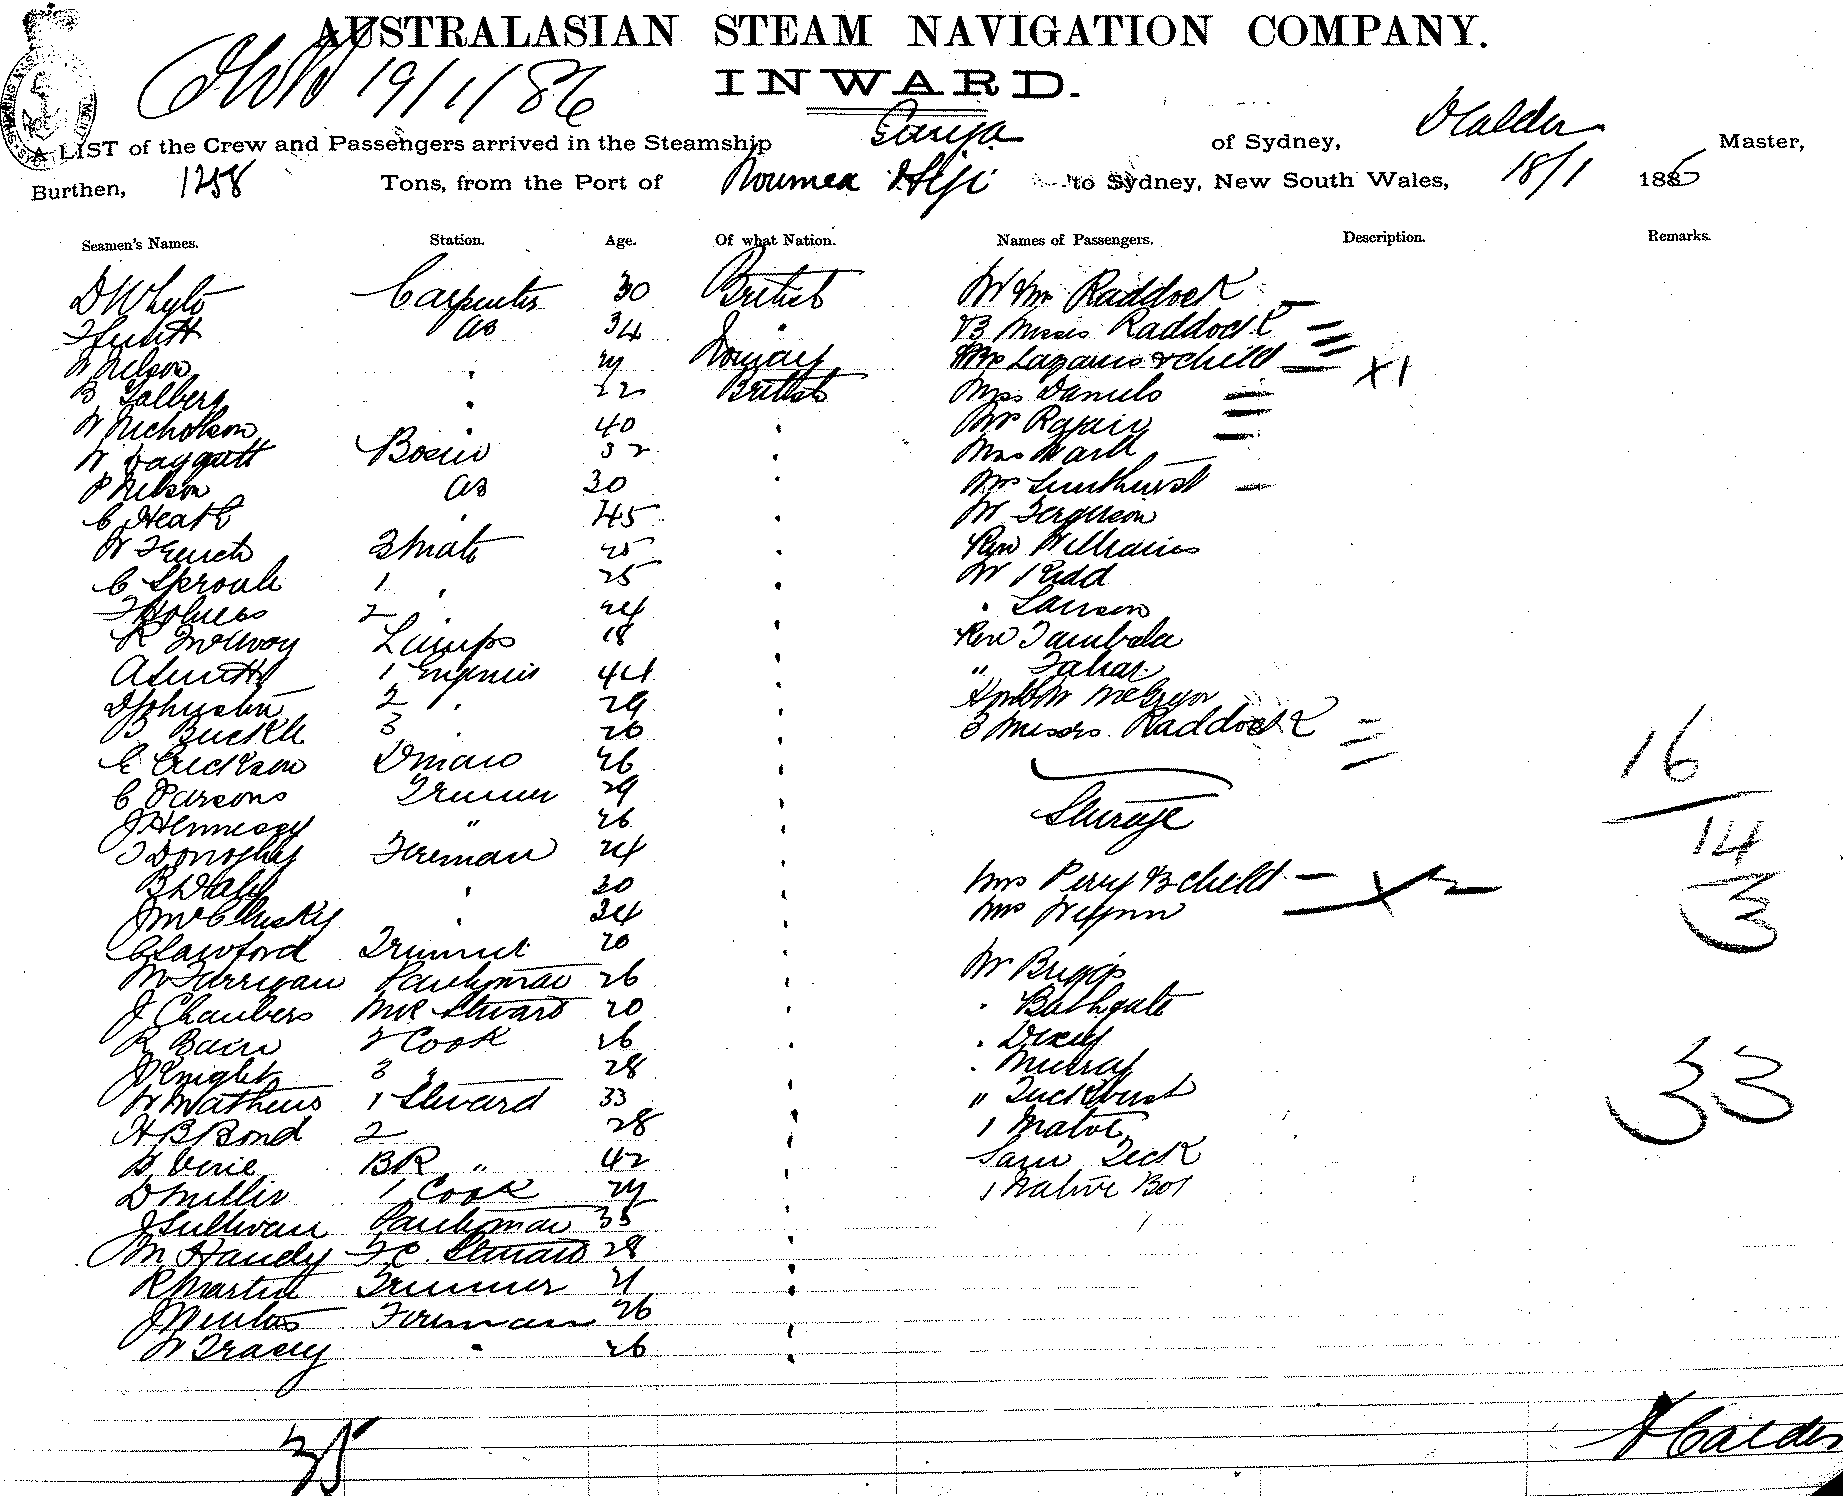 AUSTRALASIAN STEAM NAVIGATION COMPANY.
19/1/86 INWARD.
A LIST of the Crew and Passengers arrived in the Steamship Gunga of Sydney, Calder Master,
Burthen, 1258 Tons, from the Port of Noumea & Fiji to Sydney, New South Wales, 18/1 1886
Seamen's Names. Station. Age. Of what Nation. Names of Passengers. Description. Remarks.
D Whyte Carpenter 30 British Mr & Mrs Raddock
Smith AB 34 " 3 Misses Raddock
Nelson " Norway Mrs Lazarus & child x1
Talberg " 22 British Miss Daniels
W Nicholson " 40 " Mrs
W Daggett 32 " Mrs Ward
P Nelson AB 30 " Mrs
C Heath " 45 " Mr Ferguson
W French 3 Mate 25 " Rev Williams
C Sproule 1 " 25 " Mr Kidd
T Holmes 2 24 " "
R McElvoy Lamps 18 " Rev
A Smith 1 Engineer 44 " "
D Johnston 2 " 29 " McGregor
B Buckle 3 " 26 " 3 Messrs Raddock
C Erickson 26 " 16
C Parsons Trimmer 29 " Steerage
J Hennessy " 26 " 14
T Donoghy Fireman 24 "
B Daly " 30 " Mrs Perry & 3 child x 2 3
J McCluskey " 34 " Mrs Wynn
C Lawford Trimmer 20 "
Pantryman 26 " Mr Briggs
J Chambers Steward 20 " " Bathgate
R Bain 2 Cook 26 " " Dixey
J Knight 3 " 28 " " Murray 33
W Mathews 1 Steward 33 "
H B Bond 2 28 " 1
BR " 42 " Sam
D Millis 1 Cook " 1 Native Boy
J Sullivan Pantryman 35 "
M Handy Steward 28 "
R Martin Trimmer 21 "
Fireman 26 "
W Tracey " 26 "
35 Calder